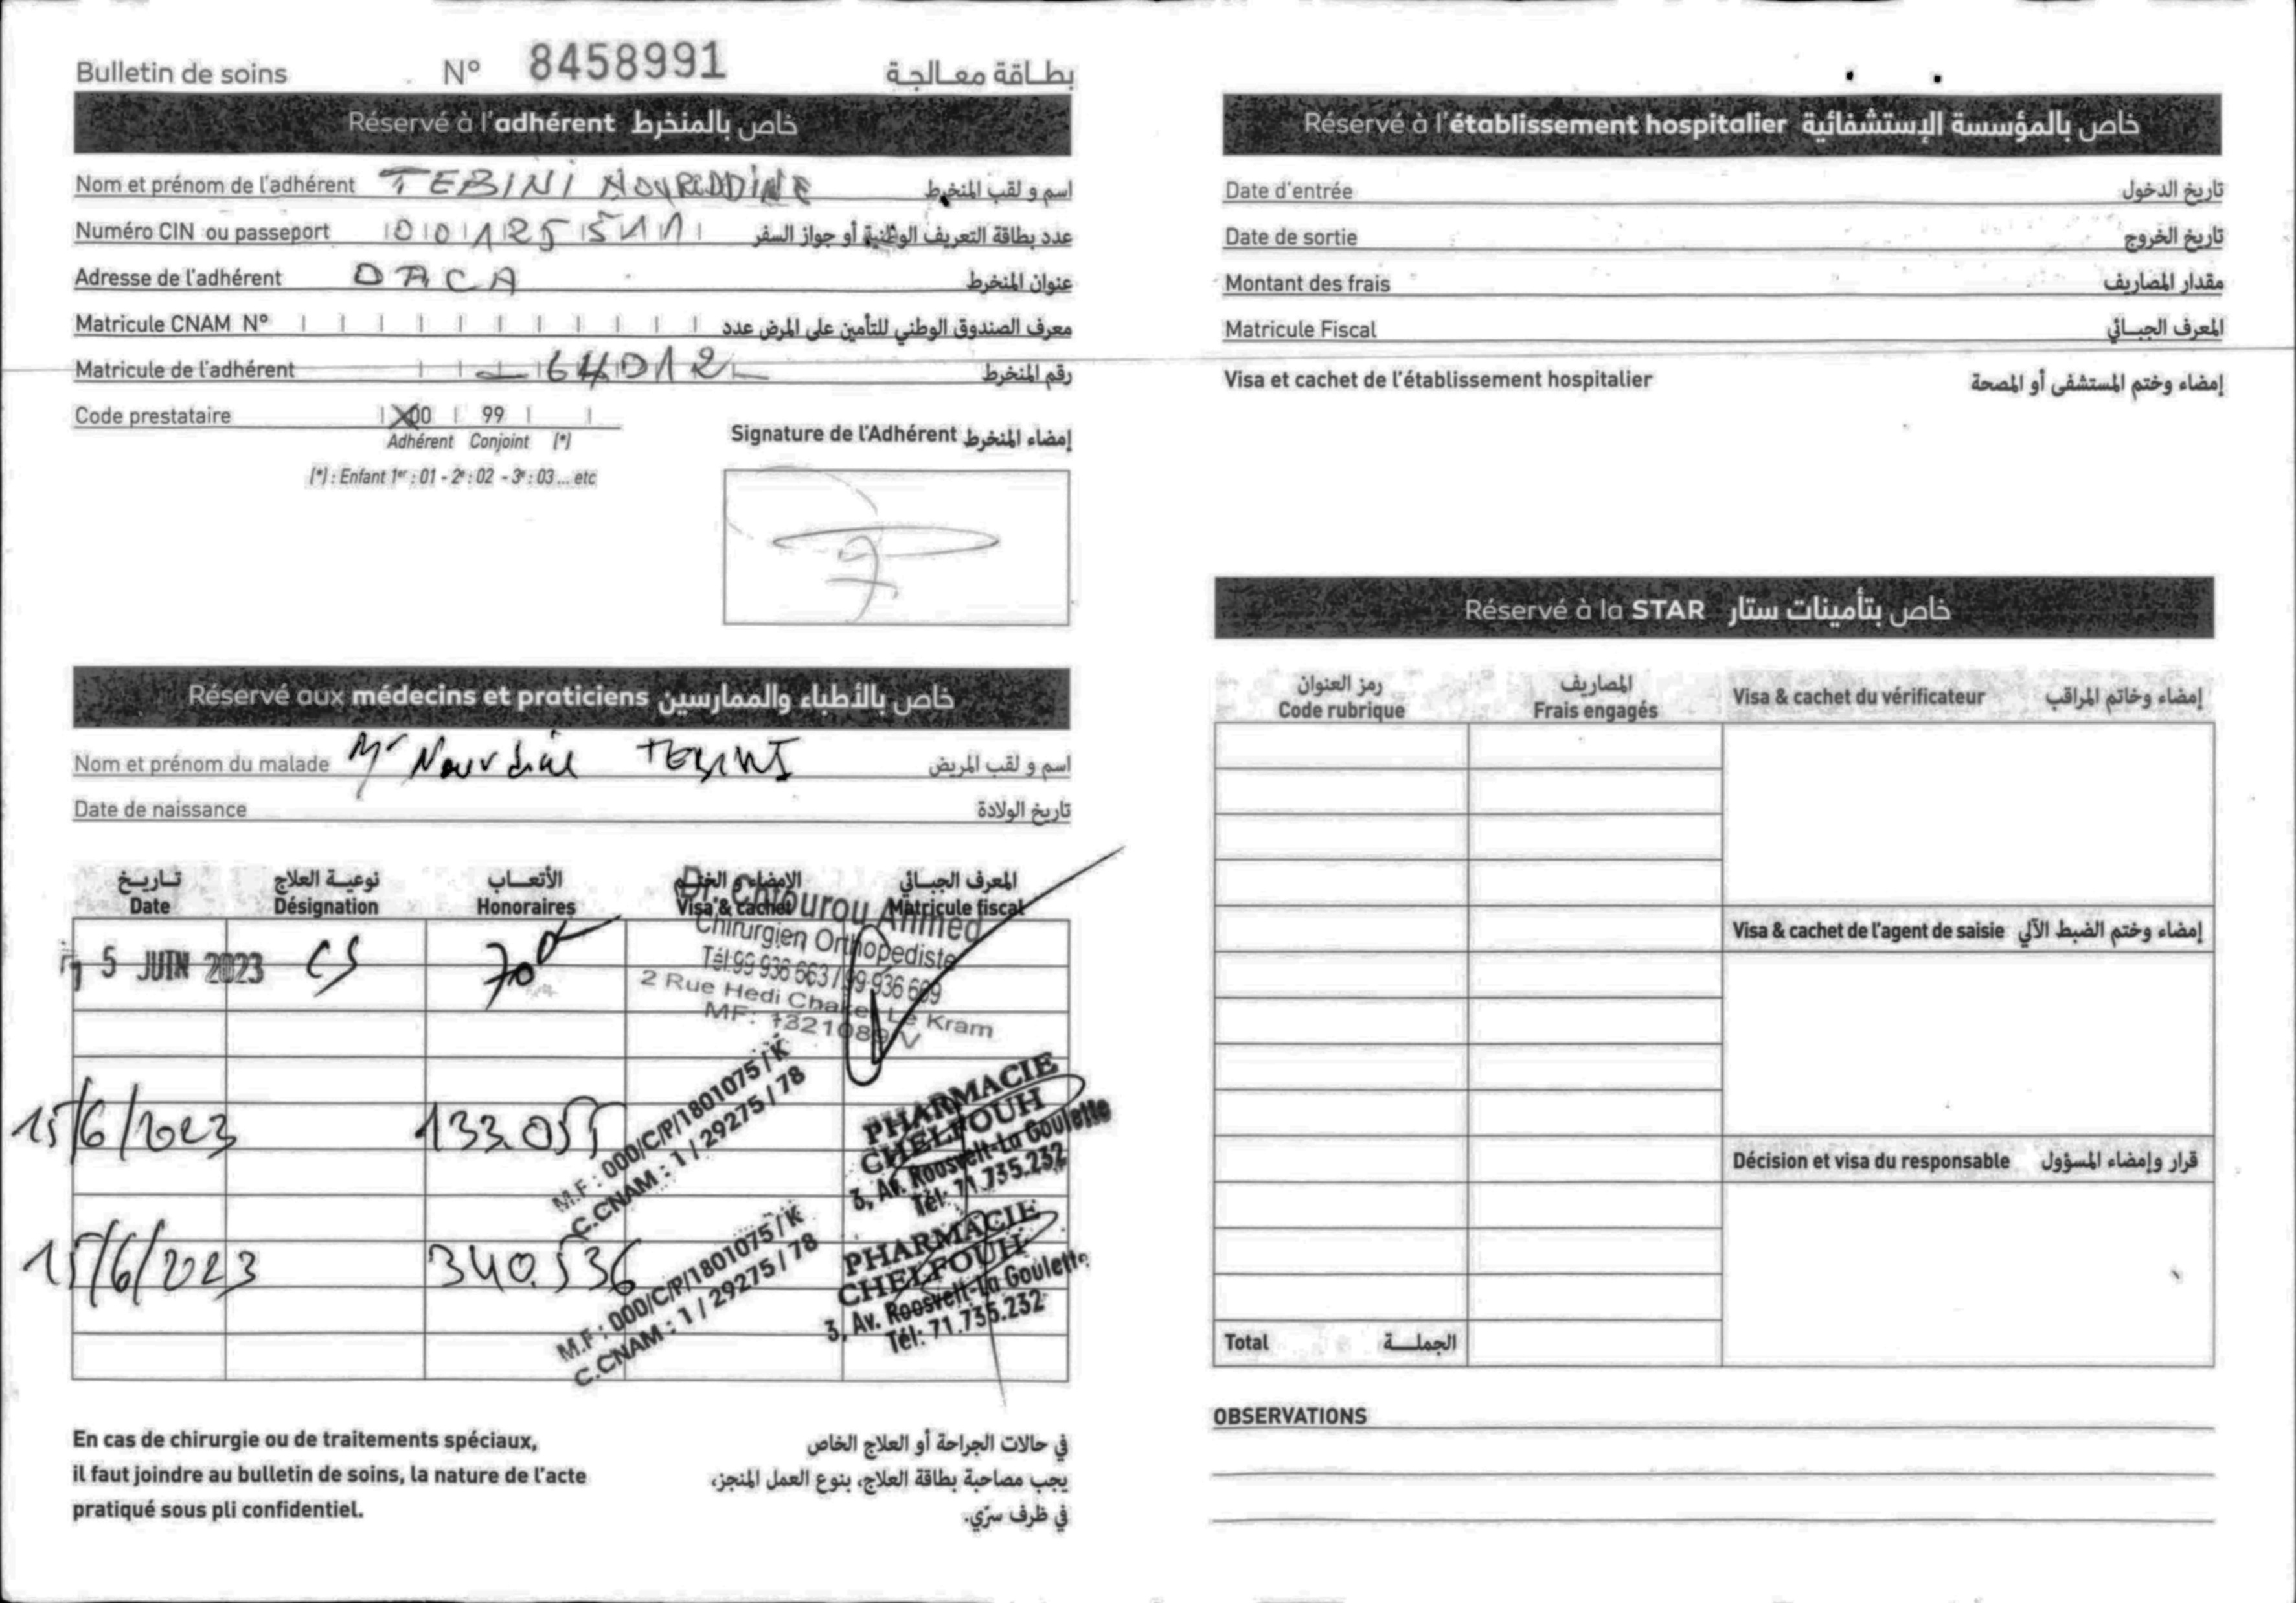 Bulletin de soins N° 8458991 بطاقة معالجة
Réservé à l'adhérent خاص بالمنخرط
Nom et prénom de l'adhérent TEBINI NOUREDDINE اسم و لقب المنخرط
Numéro CIN ou passeport 00125511 عدد بطاقة التعريف الوطنية أو جواز السفر
Adresse de l'adhérent OACA عنوان المنخرط
Matricule CNAM N° معرف الصندوق الوطني للتأمين على المرض عدد
Matricule de l'adhérent 64012 رقم المنخرط
Code prestataire 00 99
Adhérent Conjoint (*)
(*) : Enfant 1er : 01 - 2e : 02 - 3e : 03 ... etc
Signature de l'Adhérent إمضاء المنخرط
Réservé aux médecins et praticiens خاص بالأطباء والممارسين
Nom et prénom du malade Mr Nourdine TEBINI اسم و لقب المريض
Date de naissance تاريخ الولادة
تاريخ نوعية العلاج الأتعاب الإمضاء و الختم المعرف الجبائي
Date Désignation Honoraires Visa & cachet Matricule fiscal
15 JUIN 2023 CS 70
Dr. Chtourou Ahmed
Chirurgien Orthopediste
Tél:99 936 663 / 99 936 669
2 Rue Hedi Chaker Le Kram
MF: 1321089 V
15/6/2023 133.055
M.F : 000/C/P/1801075 / K
C.CNAM : 1 / 29275 / 78
PHARMACIE
CHELFOUH
3, Av. Roosvelt-La Goulette
Tél: 71.735.232
15/6/2023 340.536
M.F : 000/C/P/1801075 / K
C.CNAM : 1 / 29275 / 78
PHARMACIE
CHELFOUH
3, Av. Roosvelt-La Goulette
Tél: 71.735.232
En cas de chirurgie ou de traitements spéciaux,
il faut joindre au bulletin de soins, la nature de l'acte
pratiqué sous pli confidentiel.
في حالات الجراحة أو العلاج الخاص
يجب مصاحبة بطاقة العلاج، بنوع العمل المنجز،
في ظرف سرّي.
Réservé à l'établissement hospitalier خاص بالمؤسسة الإستشفائية
Date d'entrée تاريخ الدخول
Date de sortie تاريخ الخروج
Montant des frais مقدار المصاريف
Matricule Fiscal المعرف الجبائي
Visa et cachet de l'établissement hospitalier إمضاء وختم المستشفى أو المصحة
Réservé à la STAR خاص بتأمينات ستار
رمز العنوان المصاريف
Code rubrique Frais engagés Visa & cachet du vérificateur إمضاء وخاتم المراقب
Visa & cachet de l'agent de saisie إمضاء وختم الضبط الآلي
Décision et visa du responsable قرار وإمضاء المسؤول
Total الجملة
OBSERVATIONS